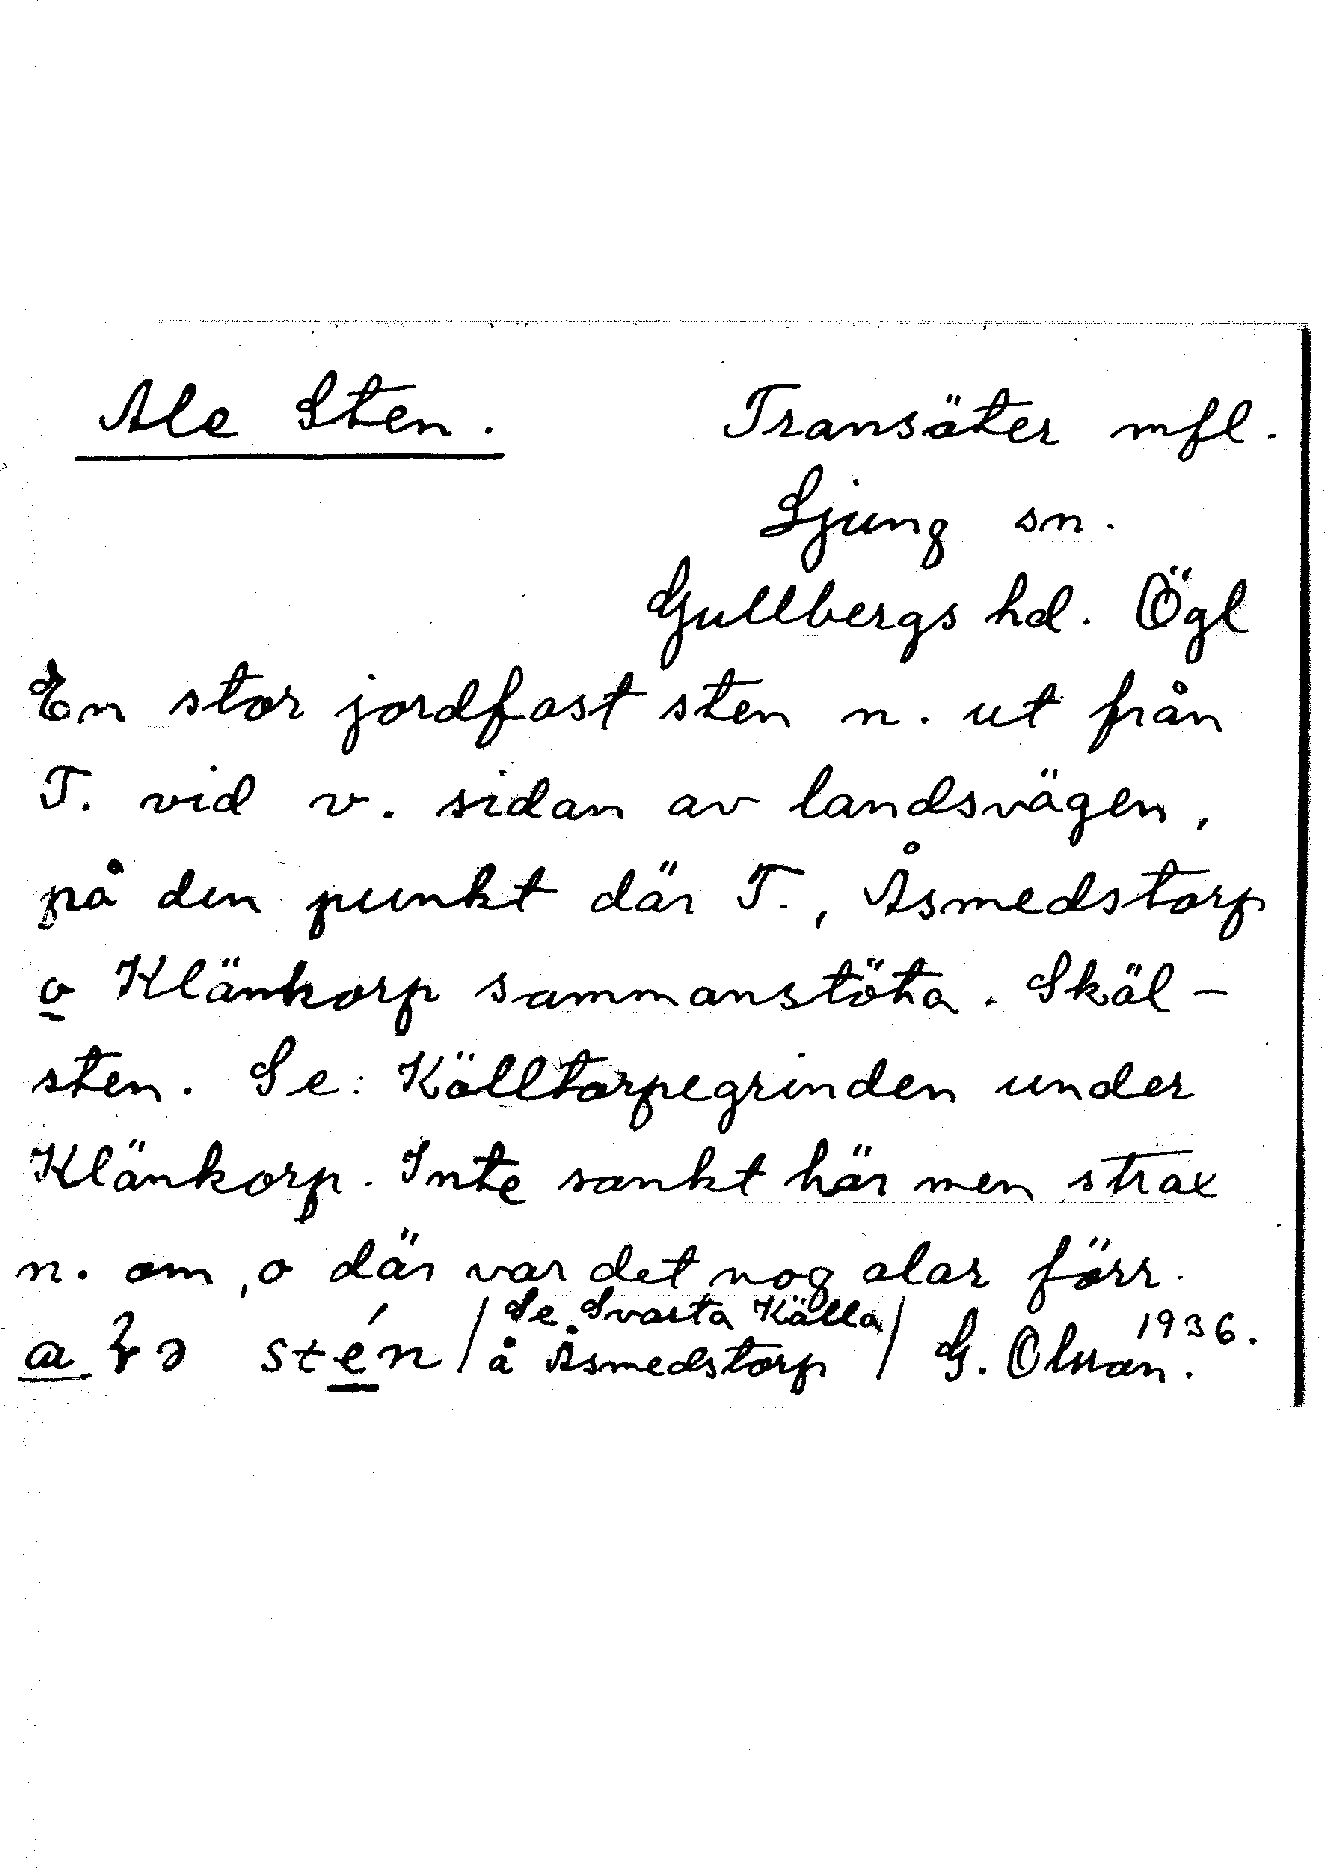 Ale Sten.
Transäter mfl.
Ljung sn.
Gullbergs hd. Ögl
En stor jordfast sten n. ut från
T. vid v. sidan av landsvägen,
på den punkt där T., Åsmedstorp
o Klänkorp sammanstöta. Skäl-
sten. Se: Källtorpegrinden under
Klänkorp. Inte sankt här men strax
n. om, o där var det nog alar förr.
stén / Se Svarta Källa
å Åsmedstorp / G. 1936.